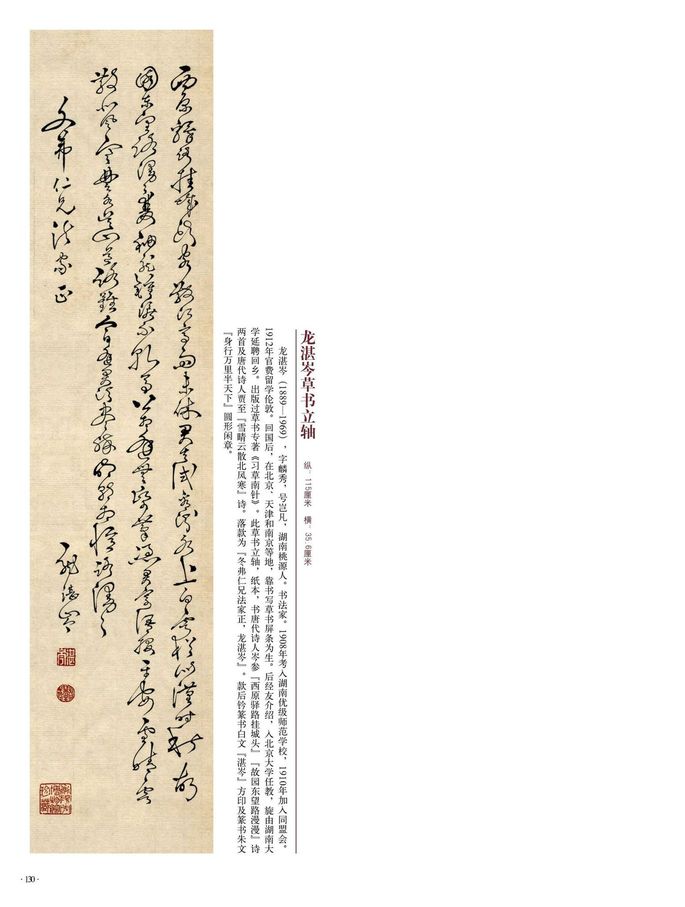 龙湛岑草书立轴
纵：115厘米 横：35.6厘米
龙湛岑（1889—1969），字麟秀，号岂凡，湖南桃源人。书法家。1908年考入湖南优级师范学校，1910年加入同盟会。
1912年官费留学伦敦。回国后，在北京、天津和南京等地，靠书写草书屏条为生。后经友介绍，入北京大学任教，旋由湖南大
学延聘回乡。出版过草书专著《习草南针》。此草书立轴，纸本，书唐代诗人岑参『西原驿路挂城头』『故园东望路漫漫』诗
两首及唐代诗人贾至『雪晴云散北风寒』诗。落款为『冬弗仁兄法家正，龙湛岑』。款后钤篆书白文『湛岑』方印及篆书朱文
『身行万里半天下』圆形闲章。
西原驛路挂城頭客散江亭雨未休君去試看汾水上白雲猶似漢時秋故
園東望路漫漫雙袖龍鍾淚不乾馬上相逢無紙筆憑君傳語報平安雪晴雲
散北風寒楚水吳山道路難今日送君須盡醉明朝相憶路漫漫
冬弗仁兄法家正
龍湛岑
湛岑
·130·